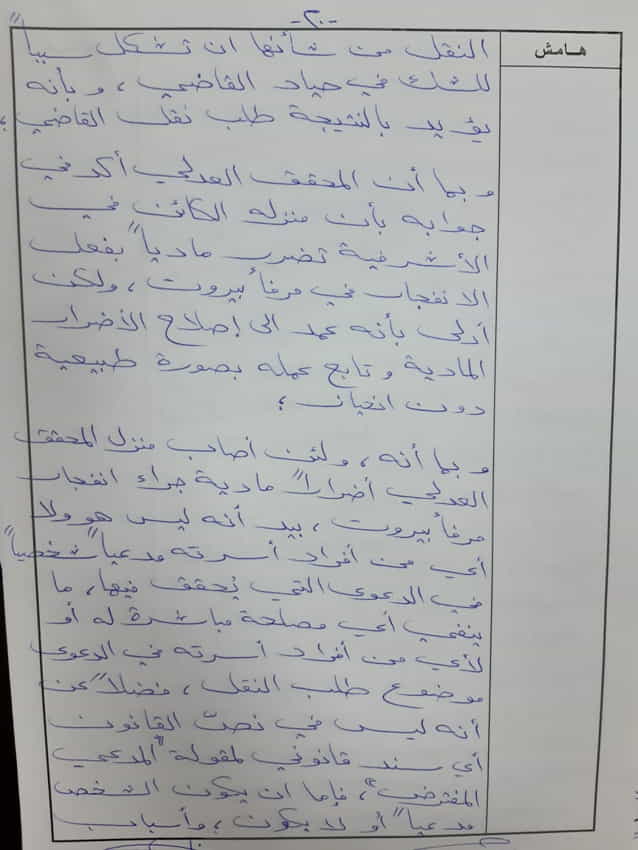 -٢٠-
هامش
النقل من شأنها ان تشكل سبباً
للشك في حياد القاضي ، و بأنه
يؤيد بالنتيجة طلب نقل القاضي ؛
و بما أن المحقق العدلي أكد في
جوابه بأن منزله الكائن في
الأشرفية تضرر مادياً بفعل
الانفجار في مرفأ بيروت ، ولكن
أدلى بأنه عمد الى إصلاح الأضرار
المادية و تابع عمله بصورة طبيعية
دون انحياز ؛
و بما أنه ، ولئن أصاب منزل المحقق
العدلي أضراراً مادية جراء انفجار
مرفأ بيروت ، بيد أنه ليس هو ولا
أي من أفراد أسرته مدعياً شخصياً
في الدعوى التي يُحقق فيها، ما
ينفي أي مصلحة مباشرة له أو
لأي من أفراد أسرته في الدعوى
موضوع طلب النقل ، فضلاً عن
أنه ليس في نصّ القانون
أي سند قانوني لمقولة "المدعي
المفترض"، فإما ان يكون الشخص
مدعياً أو لا يكون ، وأسباب